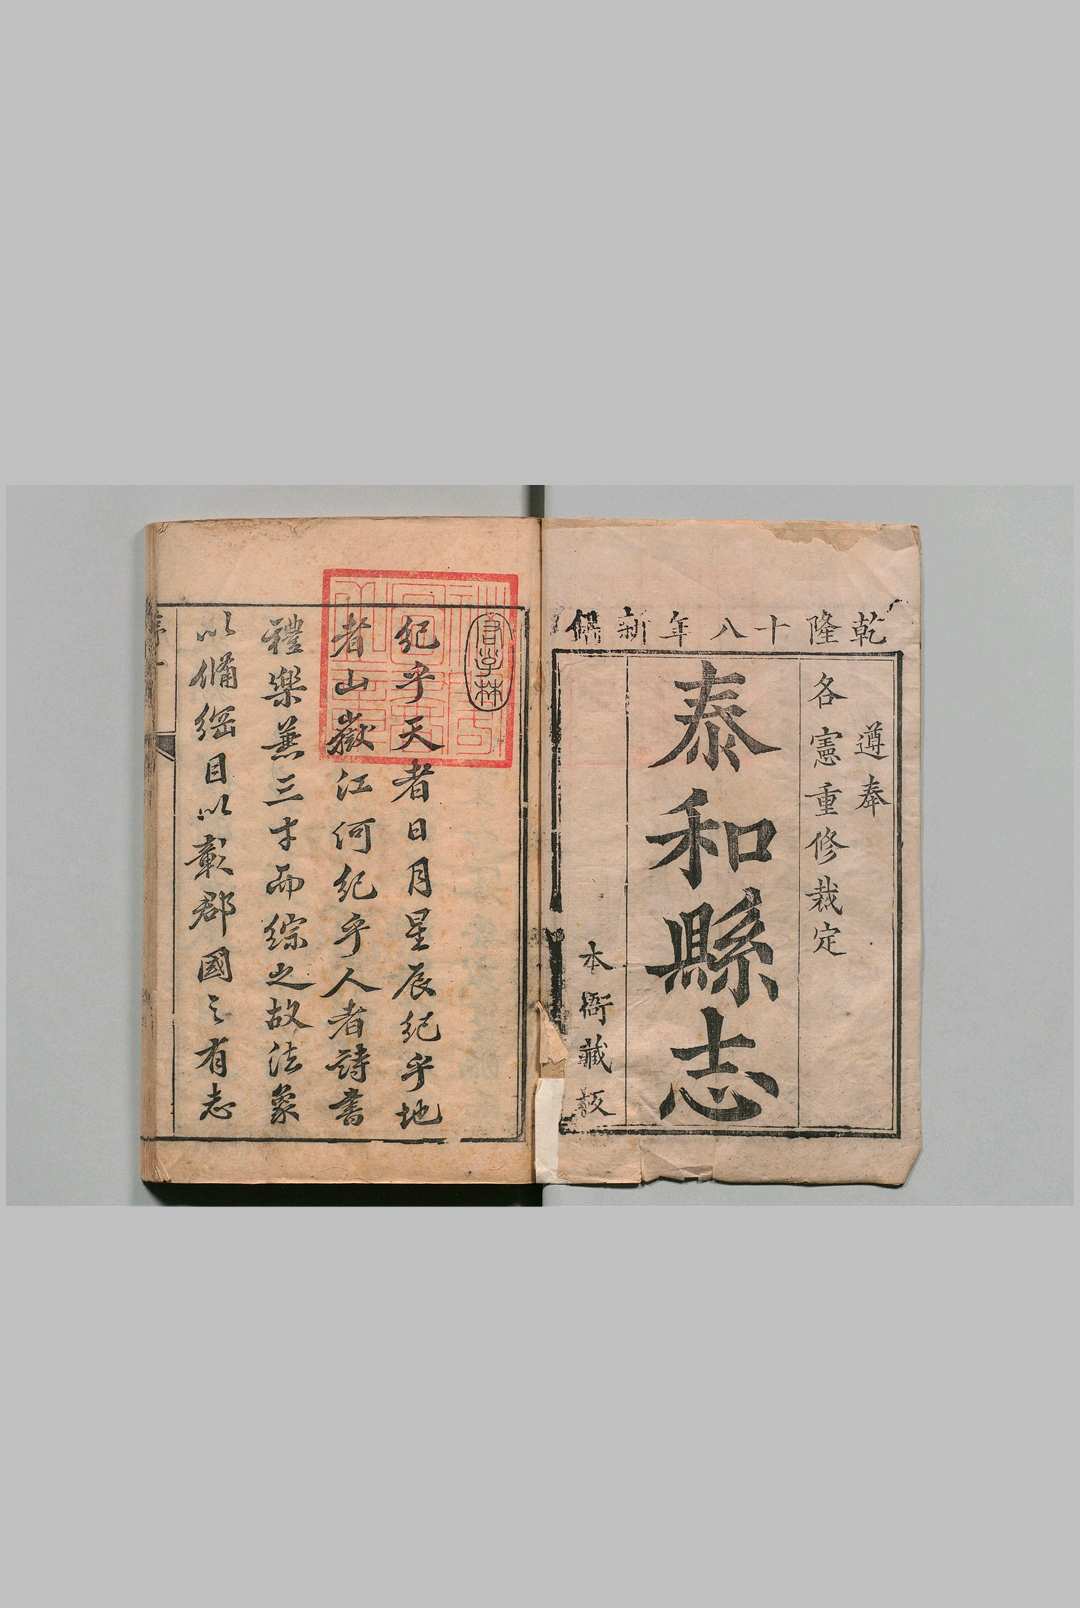 乾隆十八年新鐫
遵奉
各憲重修裁定
泰和縣志
本衙藏板
紀乎天者日月星辰紀乎地
者山嶽江河紀乎人者詩書
禮樂兼三才而綜之故法象
以備綱目以彰郡國之有志